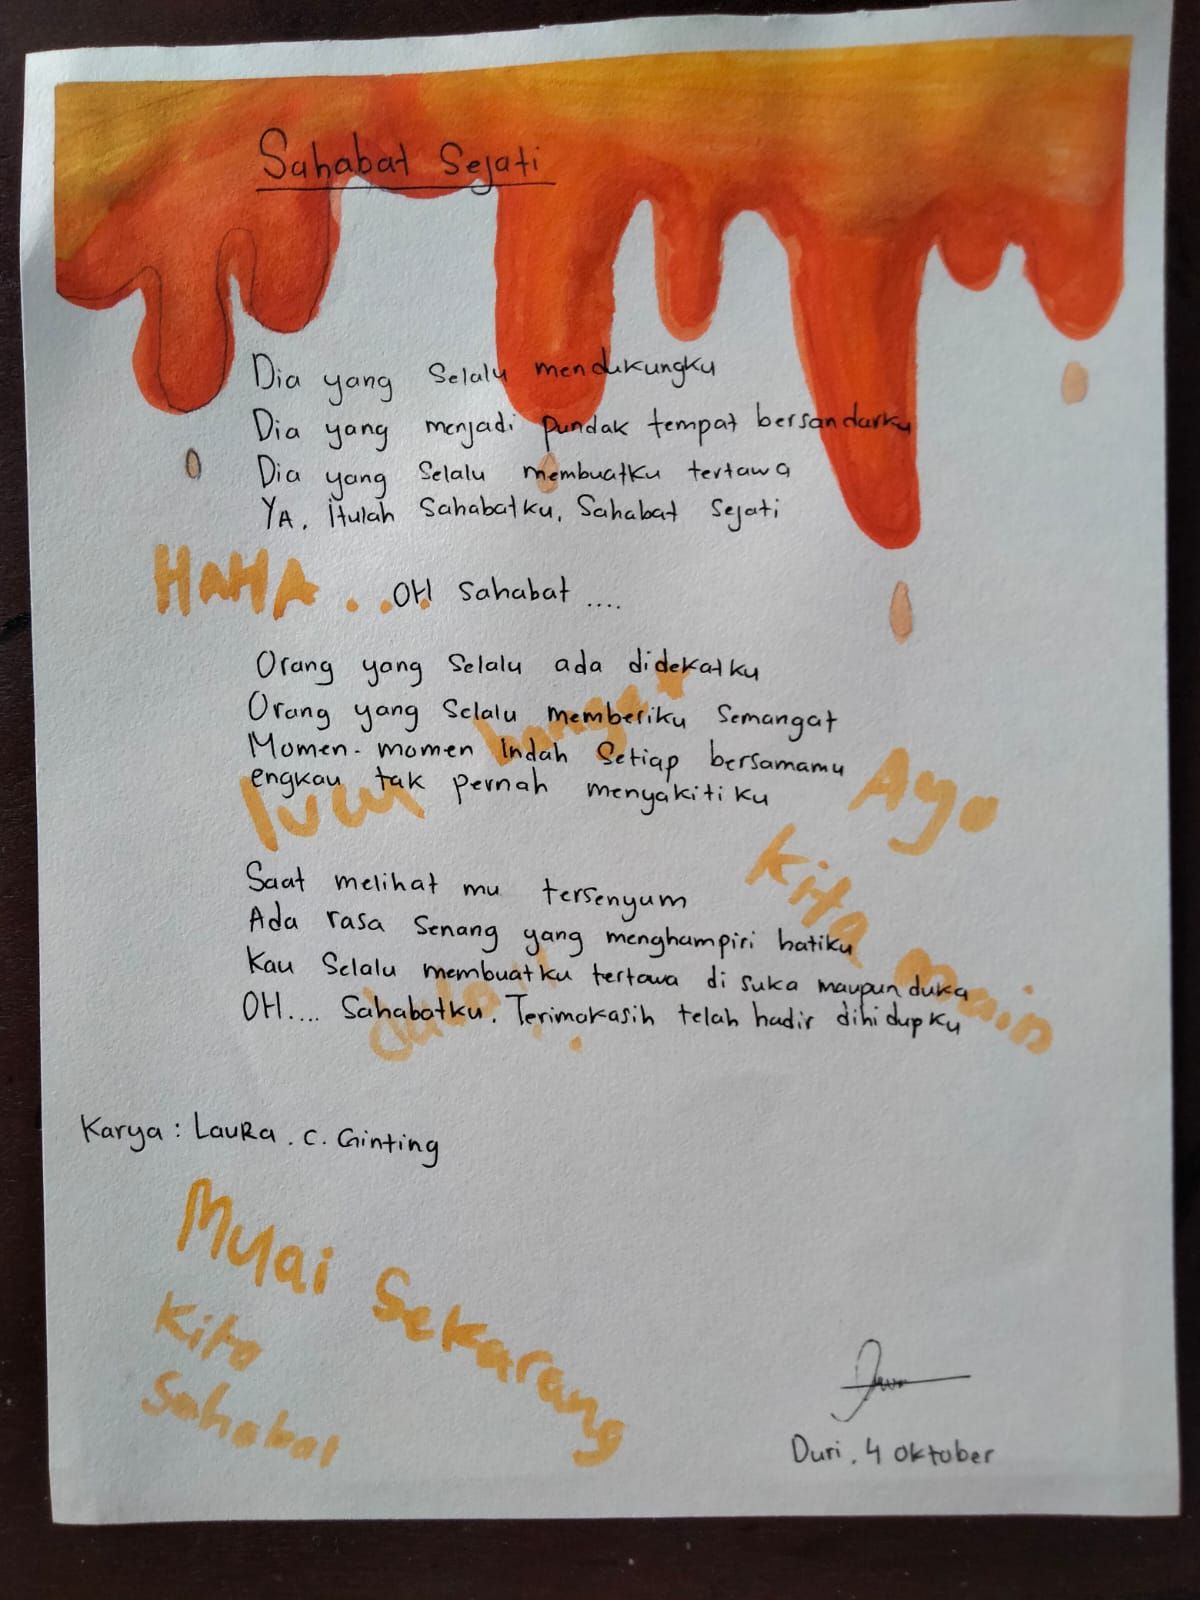 Sahabat Sejati
Dia yang Selalu mendukungku
Dia yang menjadi pundak tempat bersandarku
Dia yang Selalu membuatku tertawa
YA, Itulah Sahabatku, Sahabat Sejati
HAHA...
OH Sahabat....
Orang yang Selalu ada didekatku
Orang yang Selalu memberiku Semangat
Momen-momen Indah Setiap bersamamu
engkau tak pernah menyakitiku
lucu banget
Ayo
Kita main
Saat melihat mu tersenyum
Ada rasa Senang yang menghampiri hatiku
Kau Selalu membuatku tertawa di suka maupun duka
OH.... Sahabatku. Terimakasih telah hadir dihidupku
Karya : Laura . C. Ginting
Mulai Sekarang
Kita
Sahabat
Duri, 4 Oktober